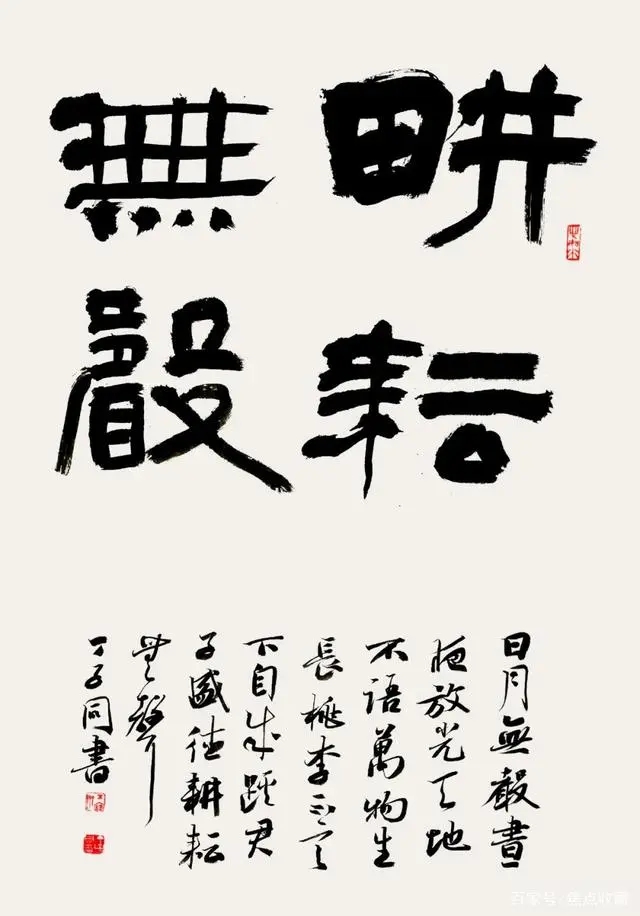 畊耘
無聲
日月無聲晝
夜放光天地
不語萬物生
長桃李不言
下自成蹊君
子盛德耕耘
無聲
丁子同書
百家号/焦点收藏